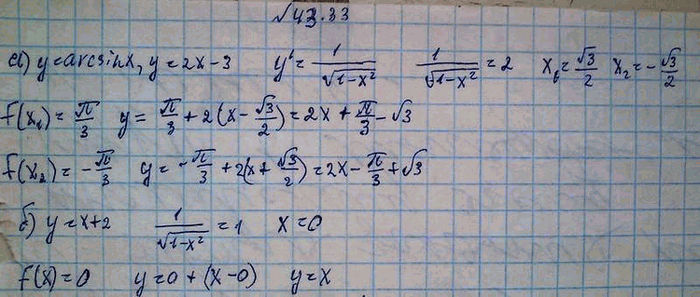 √43.33
а) y=arcsinx, y=2x-3 y'=1/√(1-x²) 1/√(1-x²)=2 x₁=√3/2 x₂=-√3/2
f(x₁)=π/3 y=π/3+2(x-√3/2)=2x+π/3-√3
f(x₂)=-π/3 y=-π/3+2(x+√3/2)=2x-π/3+√3
б) y=x+2 1/√(1-x²)=1 x=0
f(x)=0 y=0+(x-0) y=x